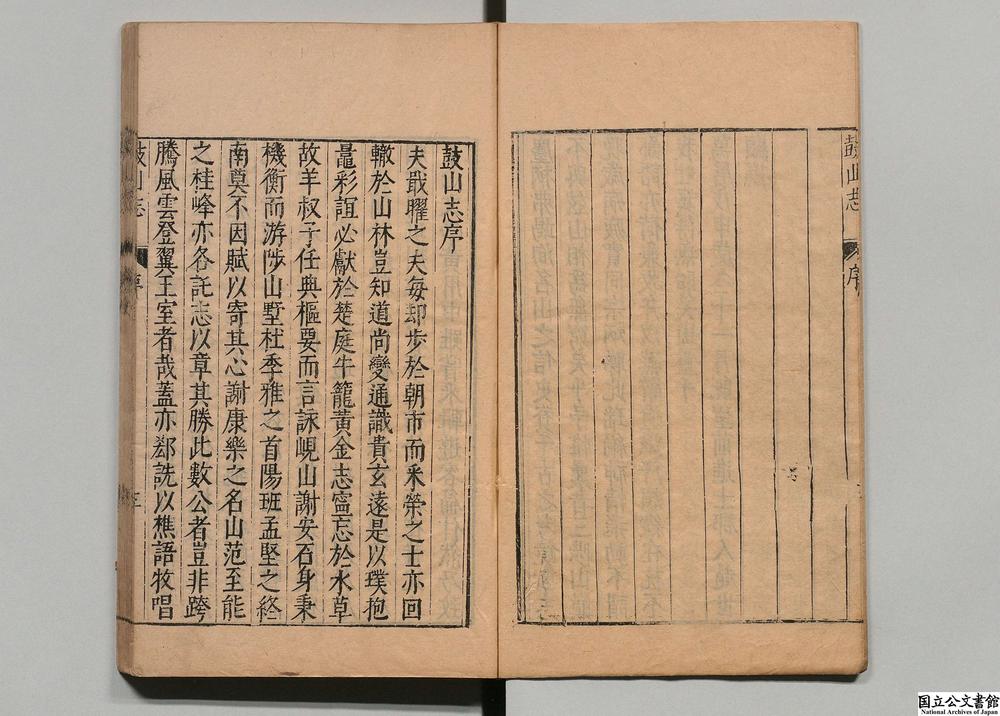 鼓山志
序
鼓山志序
夫戢曜之夫每却步於朝市而釆榮之士亦回
轍於山林豈知道尚變通識貴玄遠是以璞抱
鼂彩誼必獻於楚庭牛籠黃金志寧忘於水草
故羊叔子任典樞要而言詠峴山謝安石身秉
機衡而游陟山墅杜季雅之首陽班孟堅之終
南奠不因賦以寄其心謝康樂之名山范至能
之桂峰亦各託志以章其勝此數公者豈非跨
騰風雲登翼王室者哉蓋亦鄰詵以樵語牧唱
国立公文書館
National Archives of Japan